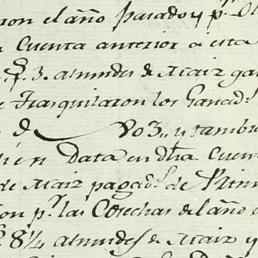 con el año pasado y p.r
cuenta anterior a esta
3. almudes de Maiz
se trasquilaron los Ganad.s
de Vo3. y tambie
bien Data en dha Cuen
de Maiz pagad.s de
con p.r las Cosechas del año
8¼ almudes de Maiz y